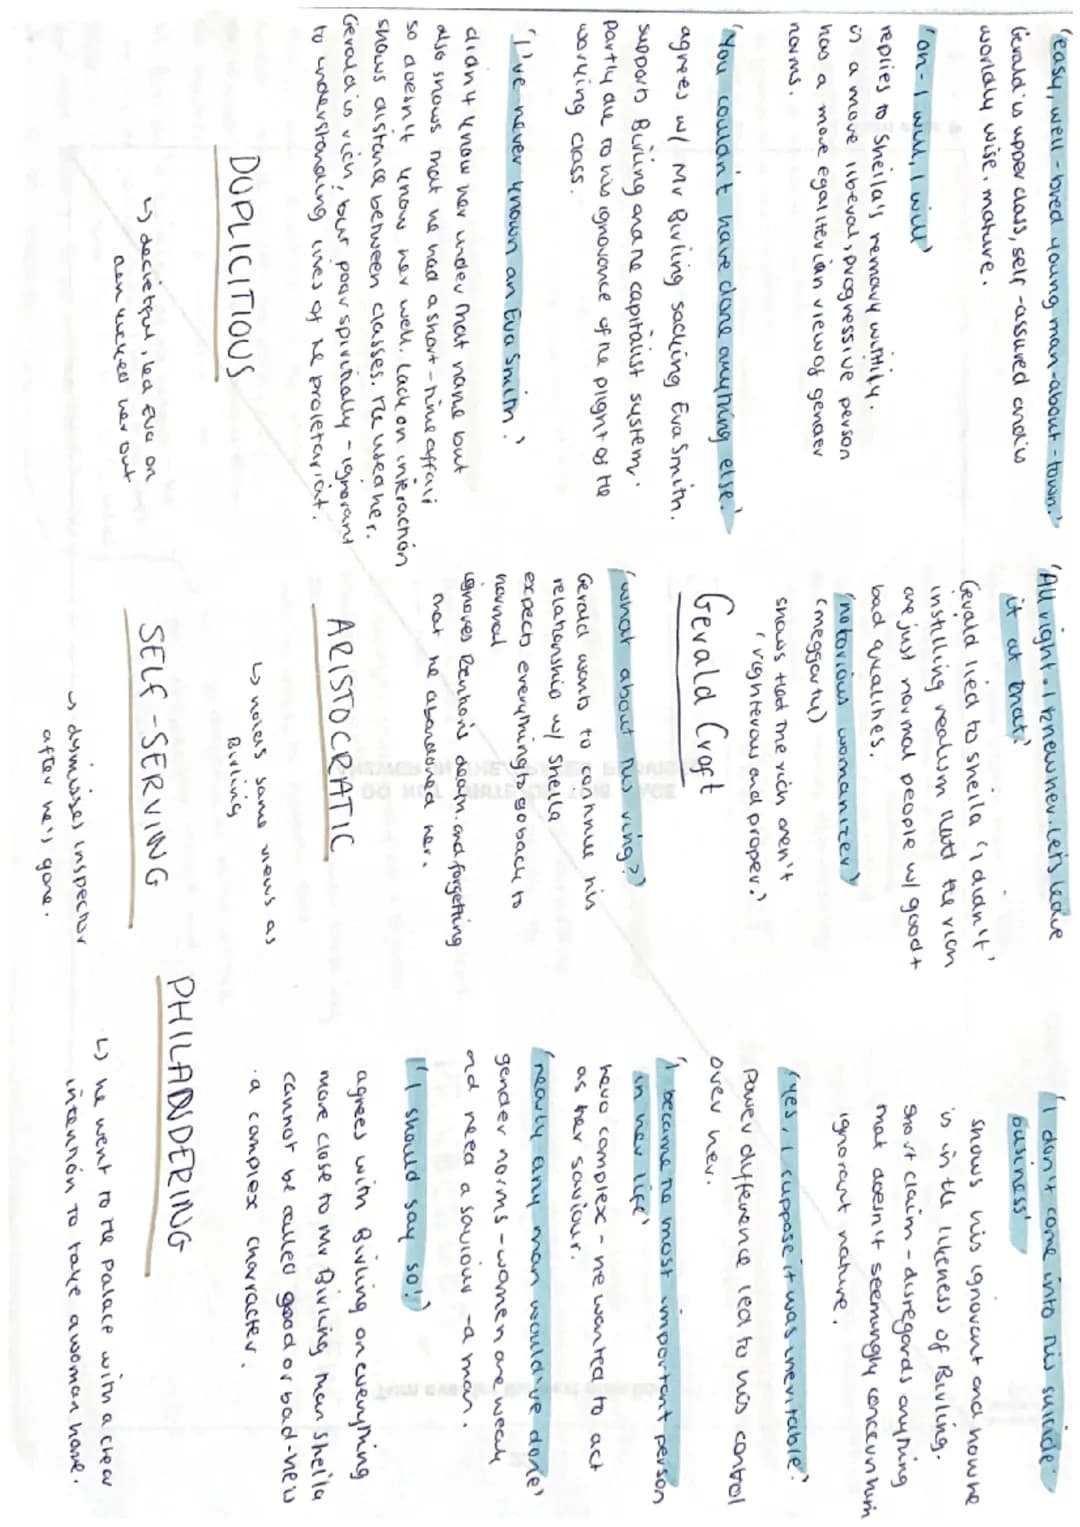 'easy, well-bred young man-about-town.'
Gerald is upper class, self-assured and is
worldly wise, mature.
'oh- I will, I will'
replies to Sheila's remark wittily.
is a more liberal, progressive person
has a more egaliterian view of gender
norms.
'You couldn't have done anything else.'
agrees w/ Mr Birling sacking Eva Smith.
supports Birling and the capitalist system.
partly due to his ignorance of the plight of the
working class.
'I've never known an Eva Smith.'
didn't know her under that name but
also shows that he had a short-time affair
so doesn't know her well. Lack on interaction
shows distance between classes.
Gerald is rich, but poor spiritually - ignorant
to understanding lives of the proletariat.
DUPLICITIOUS
↳ decietful, led Eva on
and her out
'All right. I knew her. Let's leave
it at that.'
Gerald lied to Sheila 'I didn't'
instilling realism that the rich
are just normal people w/ good +
bad qualities.
'notorious womanizer'
(meggarty)
shows that the rich aren't
'righteous and proper.'
Gerald Croft
'what about this ring?'
Gerald wants to continue his
relationship w/ Sheila
expects everything to go back to
normal
ignores Renton's death, and forgetting
that he abandoned her.
ARISTOCRATIC
↳ holds same views as
Birling
SELF-SERVING
↳ dismisses inspector
after he's gone.
'I don't come into this suicide
business'
shows his ignorant and how he
is in the likeness of Birling.
short claim - disregards anything
that doesn't seemingly concern him
ignorant nature.
'yes, I suppose it was inevitable.'
power difference led to his control
over her.
'I became the most important person
in her life'
hero complex - he wanted to act
as her saviour.
'nearly any man would've done'
gender norms - women are weak
and need a saviour - a man.
'I should say so!'
agrees with Birling on everything
more close to Mr Birling than Sheila
cannot be called good or bad - he's
a complex character.
PHILANDERING
↳ he went to the palace with a clear
intention to take a woman home.